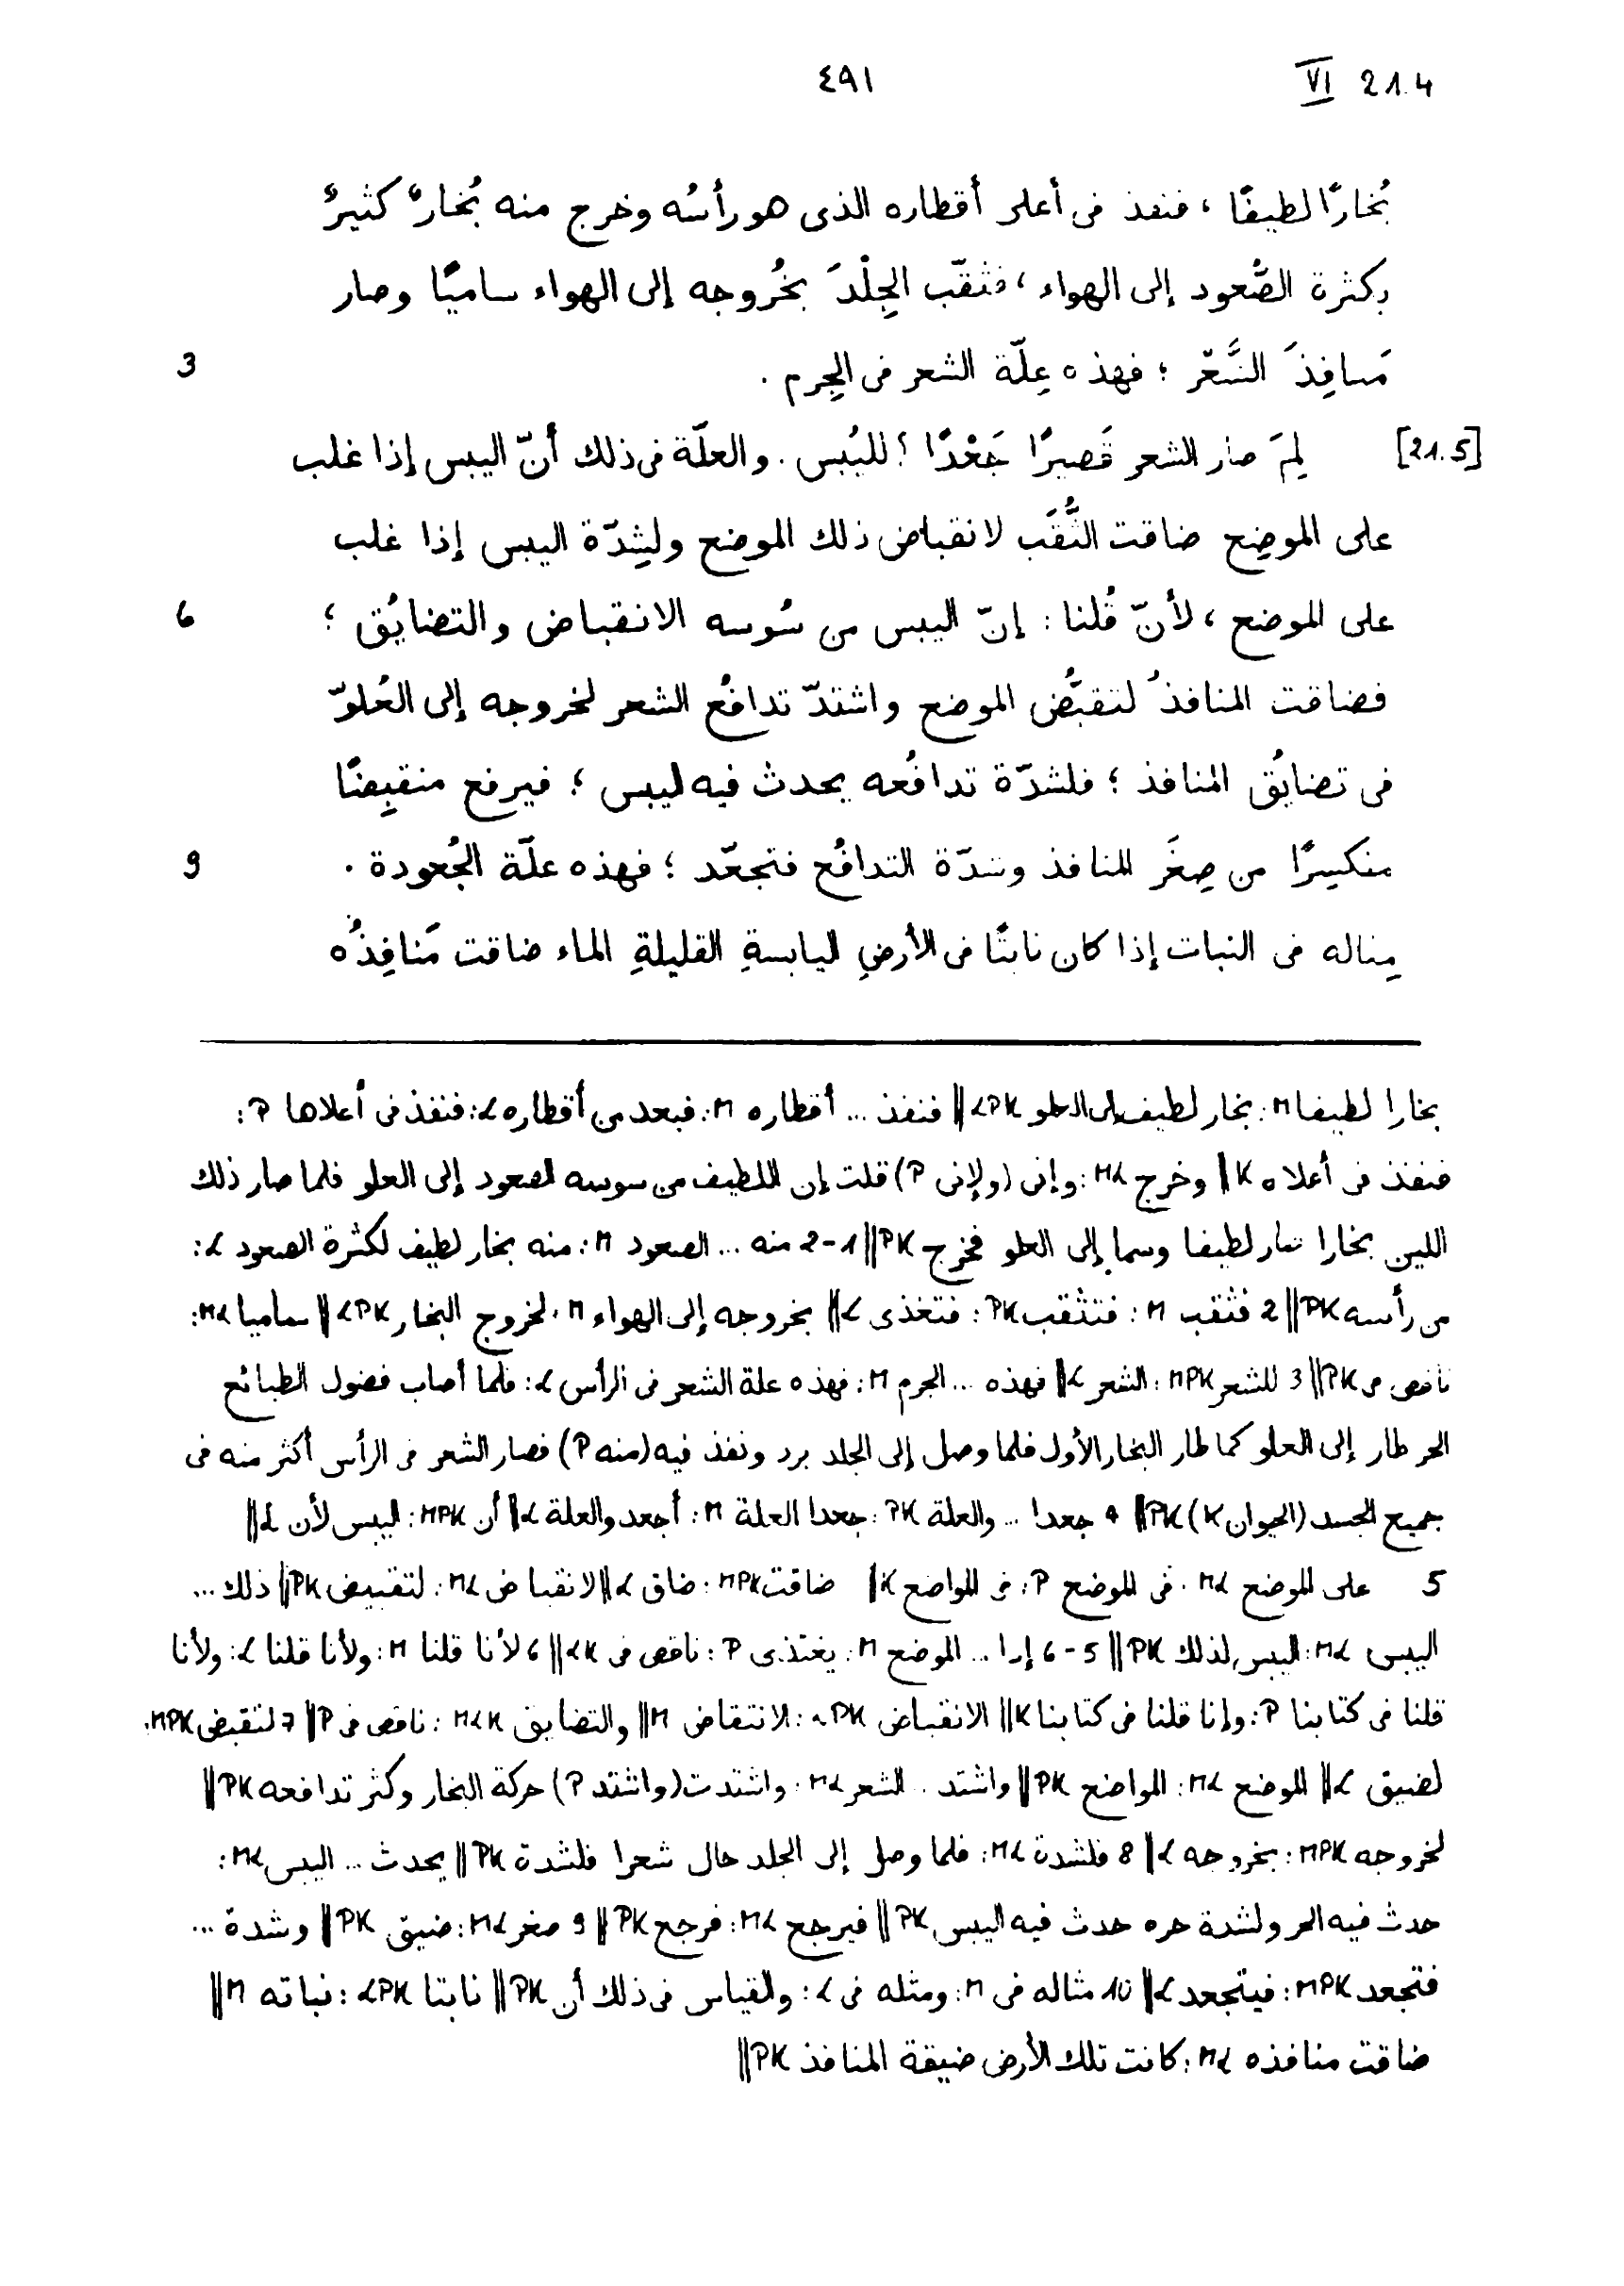 ٤٩١ VI 21.4
بُخارًا لطيفًا ، فنفذ فى أعلى أقطاره الذى هو رأسُه وخرج منه بُخارٌ كثيرٌ
بكثرة الصُّعود إلى الهواء ، فثقّب الجِلْدَ بخُروجه إلى الهواء ساميًا وصار
مَنافِذَ الشَّعْر ؛ فهذه عِلّة الشعر فى الجِرم . 3
[21.5] لِمَ صار الشعر قَصيرًا جَعْدًا ؟ لليُبس . والعلّة فى ذلك أنّ اليبس إذا غلب
على الموضِع ضاقت الثُّقَب لانقباض ذلك الموضع ولشِدّة اليبس إذا غلب
على الموضع ، لأنّ قُلنا : إنّ اليبس من سُوسه الانقباض والتضايُق ؛ 6
فضاقت المنافذُ لتقبُّض الموضع واشتدّ تدافُع الشعر لخروجه إلى العُلوّ
فى تضايُق المنافذ ؛ فلشدّة تدافُعه يحدث فيه ليبس ؛ فيرفع منقبِضًا
منكسِرًا من صِغَر المنافذ وشدّة التدافُع فتجعّد ؛ فهذه علّة الجُعودة . 9
مِثاله فى النبات إذا كان نابتًا فى الأرضِ اليابسةِ القليلةِ الماء ضاقت مَنافِذُه
بخارا لطيفا M : بخار لطيف إلى العلو LPK || فنفذ ... أقطاره M : فبعد من أقطاره L : فنفذ فى أعلاها P :
فنفذ فى أعلاه K || وخرج ML : وإنى (ولإنى P) قلت إن اللطيف من سوسه الصعود إلى العلو فلما صار ذلك
اللين بخارا لطيفا وسما إلى العلو فخرج PK || 1-2 منه ... الصعود M : منه بخار لطيف لكثرة الصعود L :
من رأسه PK || 2 فثقب M : فتثقب PK : فتغذى L || بخروجه إلى الهواء M : لخروج البخار LPK || ساميا ML :
ناقص فى PK || 3 للشعر MPK : الشعر L || فهذه ... الجرم M : فهذه علة الشعر فى الرأس L : فلما أصاب فضول الطبائع
الحر طار إلى العلو كما طار البخار الأول فلما وصل إلى الجلد برد ونفذ فيه (منه P) فصار الشعر فى الرأس أكثر منه فى
جميع الجسد (الحيوان K) PK || 4 جعدا ... والعلة PK : جعدا العلة M : أجعد والعلة L || أن MPK : اليبس لأن L ||
5 على الموضع ML : فى الموضع P : فى المواضع K || ضاقت MPK : ضاق L || لانقباض ML : لتقبيض PK || ذلك ...
اليبس ML : اليبس لذلك PK || 5-6 إذا ... الموضع M : يغتذى P : ناقص فى LK || 6 لأنا قلنا M : ولأنا قلنا L : ولأنا
قلنا فى كتابنا P : وإنا قلنا فى كتابنا K || الانقباض LPK : الانتقاض M || والتضايق MLK : ناقص فى P || 7 لتقبض MPK :
لضيق L || الموضع ML : المواضع PK || واشتد .. الشعر ML : واشتدت (واشتد P) حركة البخار وكثر تدافعه PK ||
لخروجه MPK : بخروجه L || 8 فلشدة ML : فلما وصل إلى الجلد حال شعرا فلشدة PK || يحدث ... اليبس ML :
حدث فيه الحر ولشدة حره حدث فيه اليبس PK || فيرجع ML : فرجع PK || 9 صغر ML : ضيق PK || وشدة ...
فتجعد MPK : فيتجعد L || 10 مثاله فى M : ومثله فى L : والقياس فى ذلك أن PK || نابتا LPK : نباته M ||
ضاقت منافذه ML : كانت تلك الأرض ضيقة المنافذ PK ||